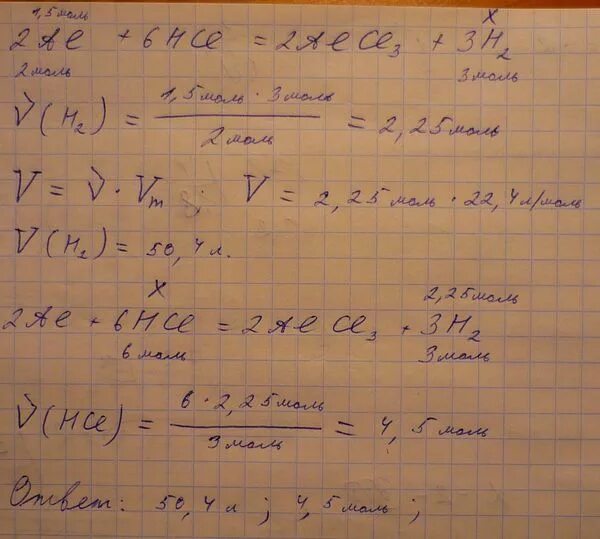 1,5моль x
2Al + 6HCl = 2AlCl₃ + 3H₂
2моль 3моль
ν(H₂) = 1,5моль · 3моль / 2моль = 2,25моль
V = ν · Vm ; V = 2,25моль · 22,4л/моль
V(H₂) = 50,4л.
x 2,25моль
2Al + 6HCl = 2AlCl₃ + 3H₂
6моль 3моль
ν(HCl) = 6 · 2,25моль / 3моль = 4,5моль
Ответ: 50,4л ; 4,5моль ;